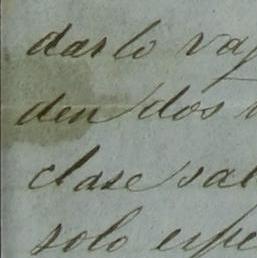 darlo vay
den dos
clase sal
solo espe